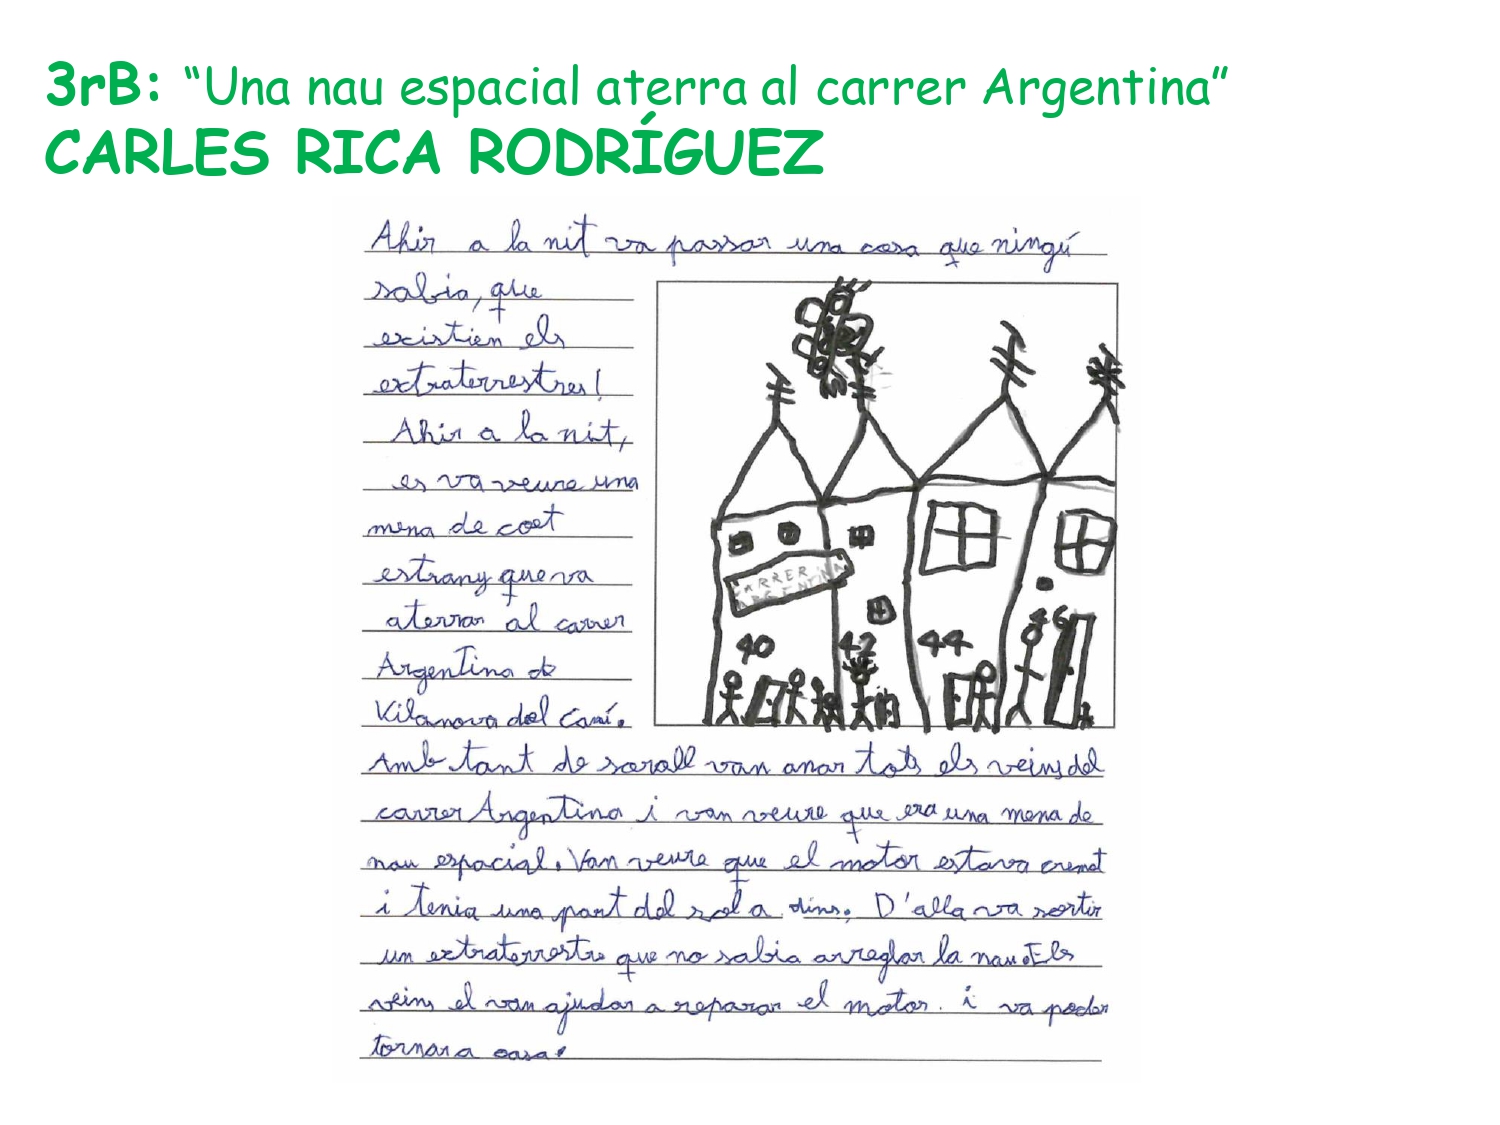 3rB: “Una nau espacial aterra al carrer Argentina”
CARLES RICA RODRÍGUEZ
Ahir a la nit va passar una cosa que ningú
sabia, que
existien els
extraterrestres!
Ahir a la nit,
es va veure una
mena de coet
estrany que va
aterrar al carrer
Argentina de
Vilanova del Camí.
CARRER
ARGENTINA
40
42
44
46
Amb tant de soroll van anar tots els veins del
carrer Argentina i van veure que era una mena de
nau espacial. Van veure que el motor estava cremat
i tenia una part del sol a dins. D'alla va sortir
un extraterrestre que no sabia arreglar la nau. Els
veins el van ajudar a reparar el motor. i va poder
tornar a casa.